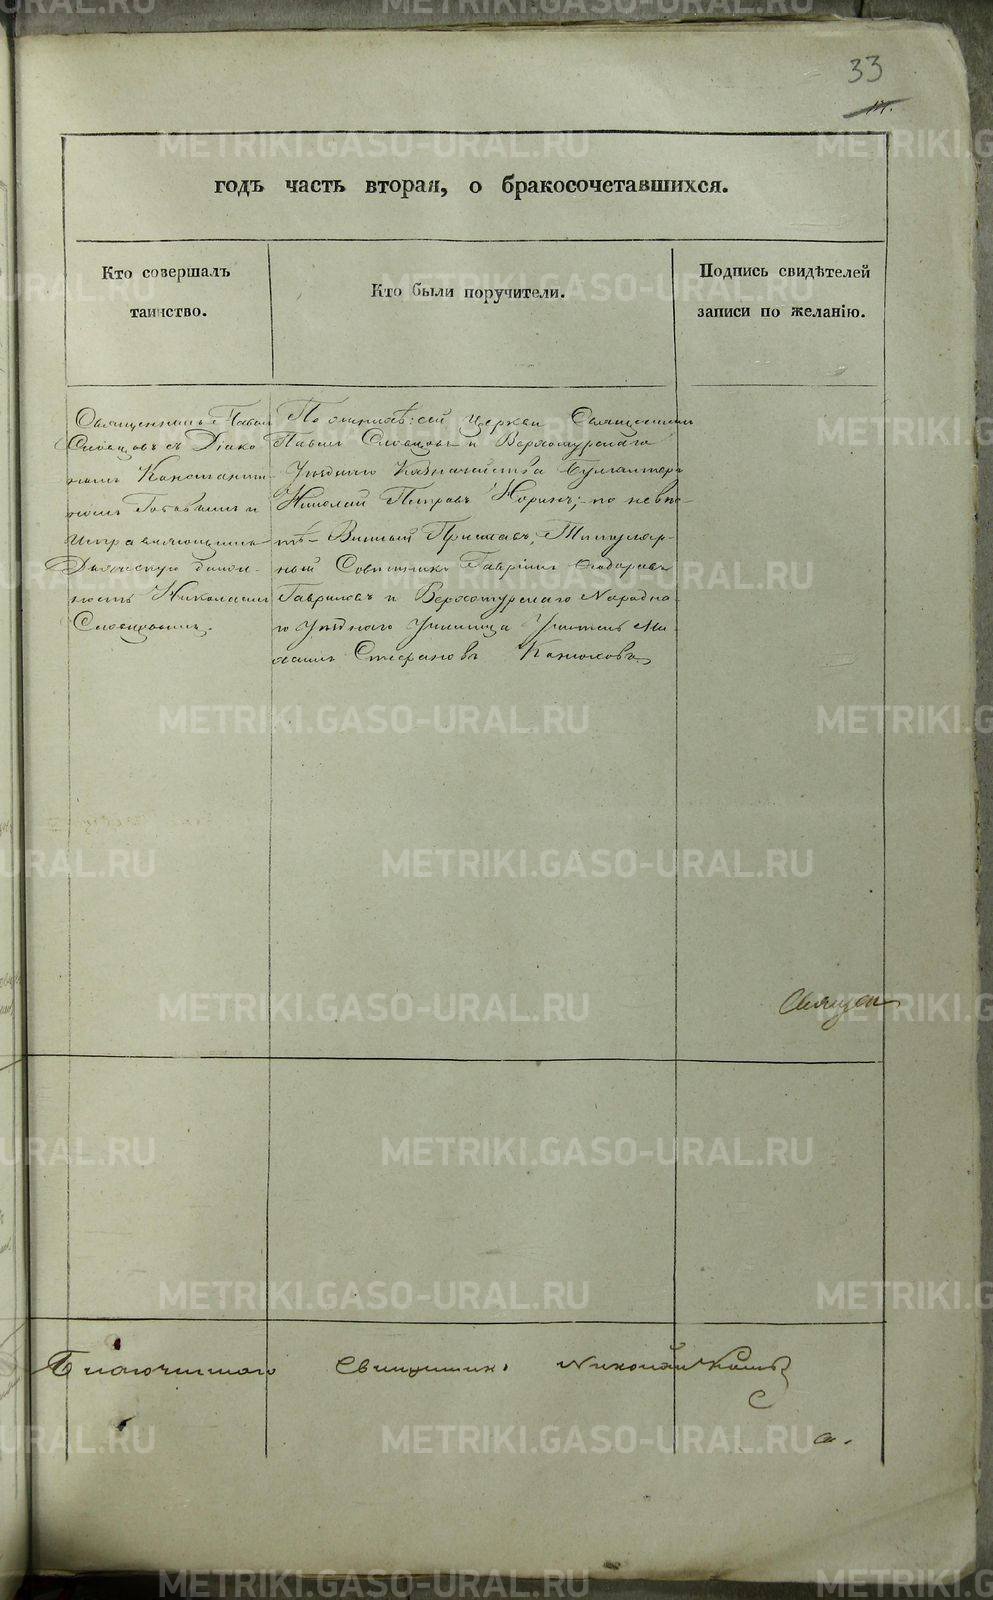 33
годъ часть вторая, о бракосочетавшихся.
Кто совершалъ
таинство.
Кто были поручители.
Подпись свидѣтелей
записи по желанію.
Священникъ Павелъ
Словцовъ съ Діако
номъ Константи
номъ
и
Исправляющимъ
Дьяческую долж-
ность Николаемъ
Словцовымъ.
По женихѣ: сей церкви Священникъ
Павелъ Словцовъ и Верхотурскаго
Уѣзднаго Казначейства Бухгалтеръ
Николай Петровъ Норинъ; по невѣс-
тѣ Винный Приставъ, Титуляр-
ный Совѣтникъ Гавріилъ Ѳедоровъ
Гавриловъ и Верхотурскаго Народна-
го Уѣзднаго Училища Учитель Ми-
хаилъ Стефановъ Конюховъ
Священ
Благочиннаго Священник Николай
METRIKI.GASO-URAL.RU